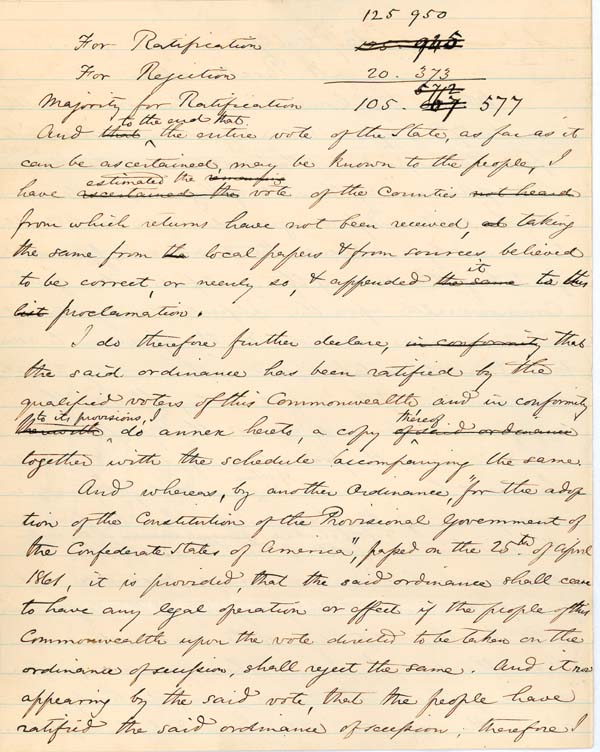 125 950
For Ratification 125. 945
For Rejection 20. 373
572
Majority for Ratification 105. 67 577
to the end that
And that ^ the entire vote of the State, as far as it
can be ascertained, may be known to the people, I
estimated the remaining
have ascertained the vote of the Counties not heard
from which returns have not been received, taking
the same from the local papers & from sources believed
it
to be correct, or nearly so, & appended the same to this
list proclamation.
I do therefore further declare, in conformity that
the said ordinance has been ratified by the
qualified voters of this Commonwealth and in conformity
to its provisions, I thereof
herewith ^ do annex hereto, a copy ^ of said ordinance
together with the schedule accompanying the same.
And whereas, by another Ordinance, "for the adop
tion of the Constitution of the Provisional Government of
the Confederate States of America", passed on the 25th. of April
1861, it is provided, that the said ordinance shall cease
to have any legal operation or effect if the people of this
Commonwealth upon the vote directed to be taken on the
ordinance of secession, shall reject the same. And it now
appearing by the said vote, that the people have
ratified the said ordinance of secession; therefore I